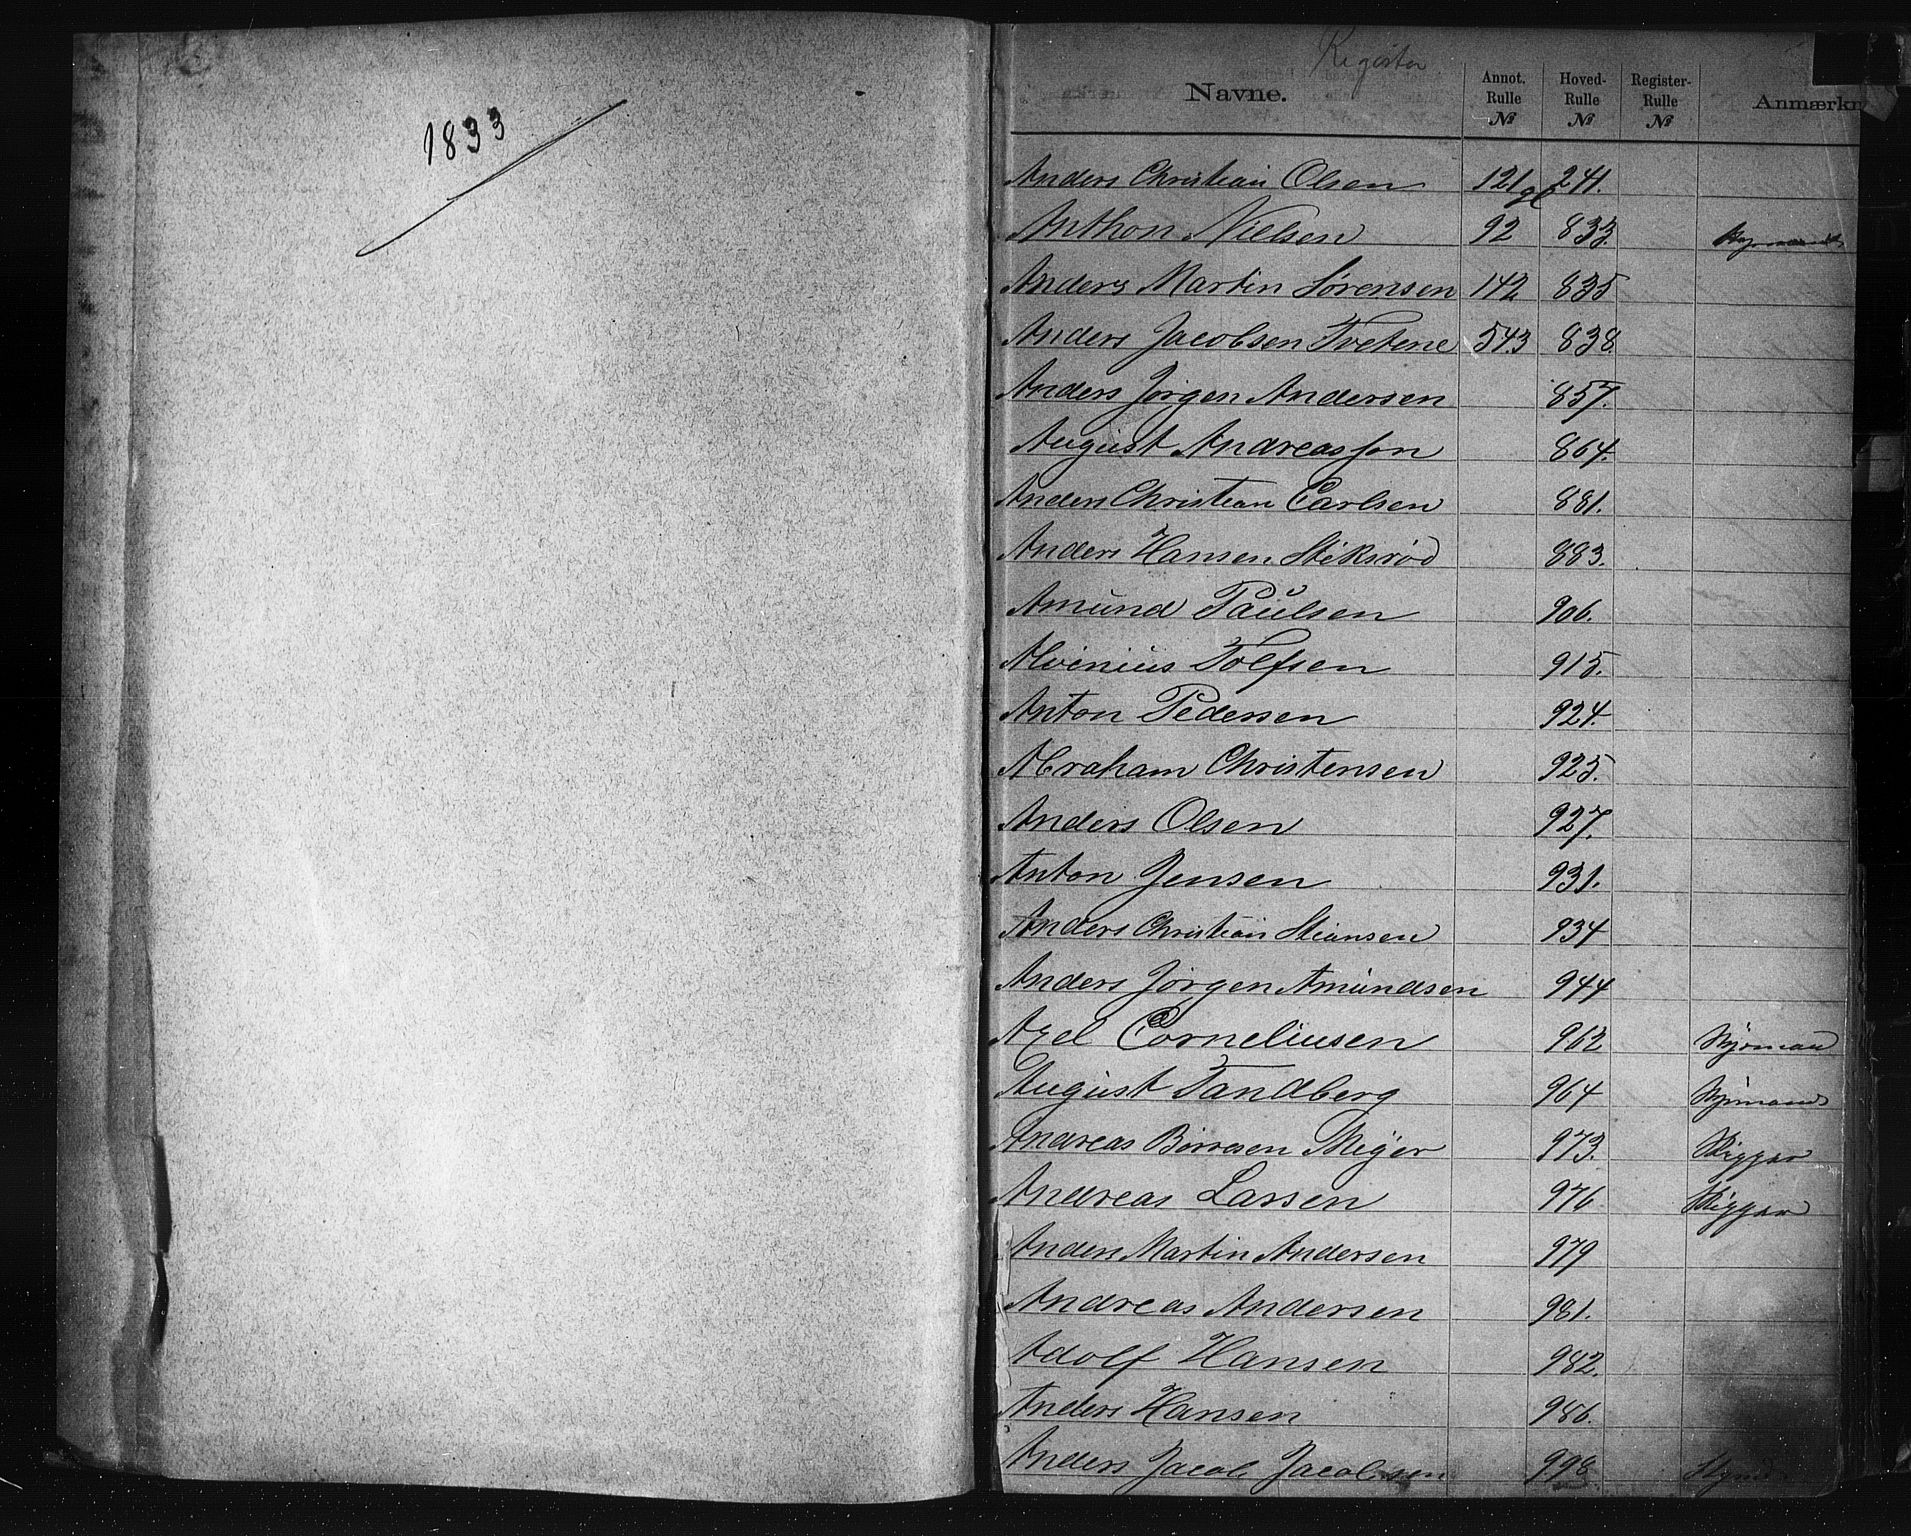 1833
Register
Navne. Annot. Rulle № Hoved- Rulle № Register- Rulle № Anmærkn
Anders Christian Olsen 121 gl 241.
Anthon Nielsen 92 833.
Anders Martin Sørensen 142 835
Anders Jacobsen Tvetene 543 838.
Anders Jørgen Andersen 857.
August Andreasson 864.
Anders Christian Carlsen 881.
Anders Hansen Stiksrød 883.
Amund Paulsen 906.
Alvinius Tolfsen 915.
Anton Pedersen 924.
Abraham Christensen 925.
Anders Olsen 927.
Anton Jensen 931.
Anders Christian Stiansen 934
Anders Jørgen Amundsen 944
Axel Corneliusen 962 Styrmand
August Tandberg 964 Styrmand
Andreas Børresen Meyer 973. Skipper
Andreas Larsen 976 Skipper
Anders Martin Andersen 979
Andreas Andersen 981.
Adolf Hansen 982.
Anders Hansen 986.
Anders Jacob Jacobsen 998